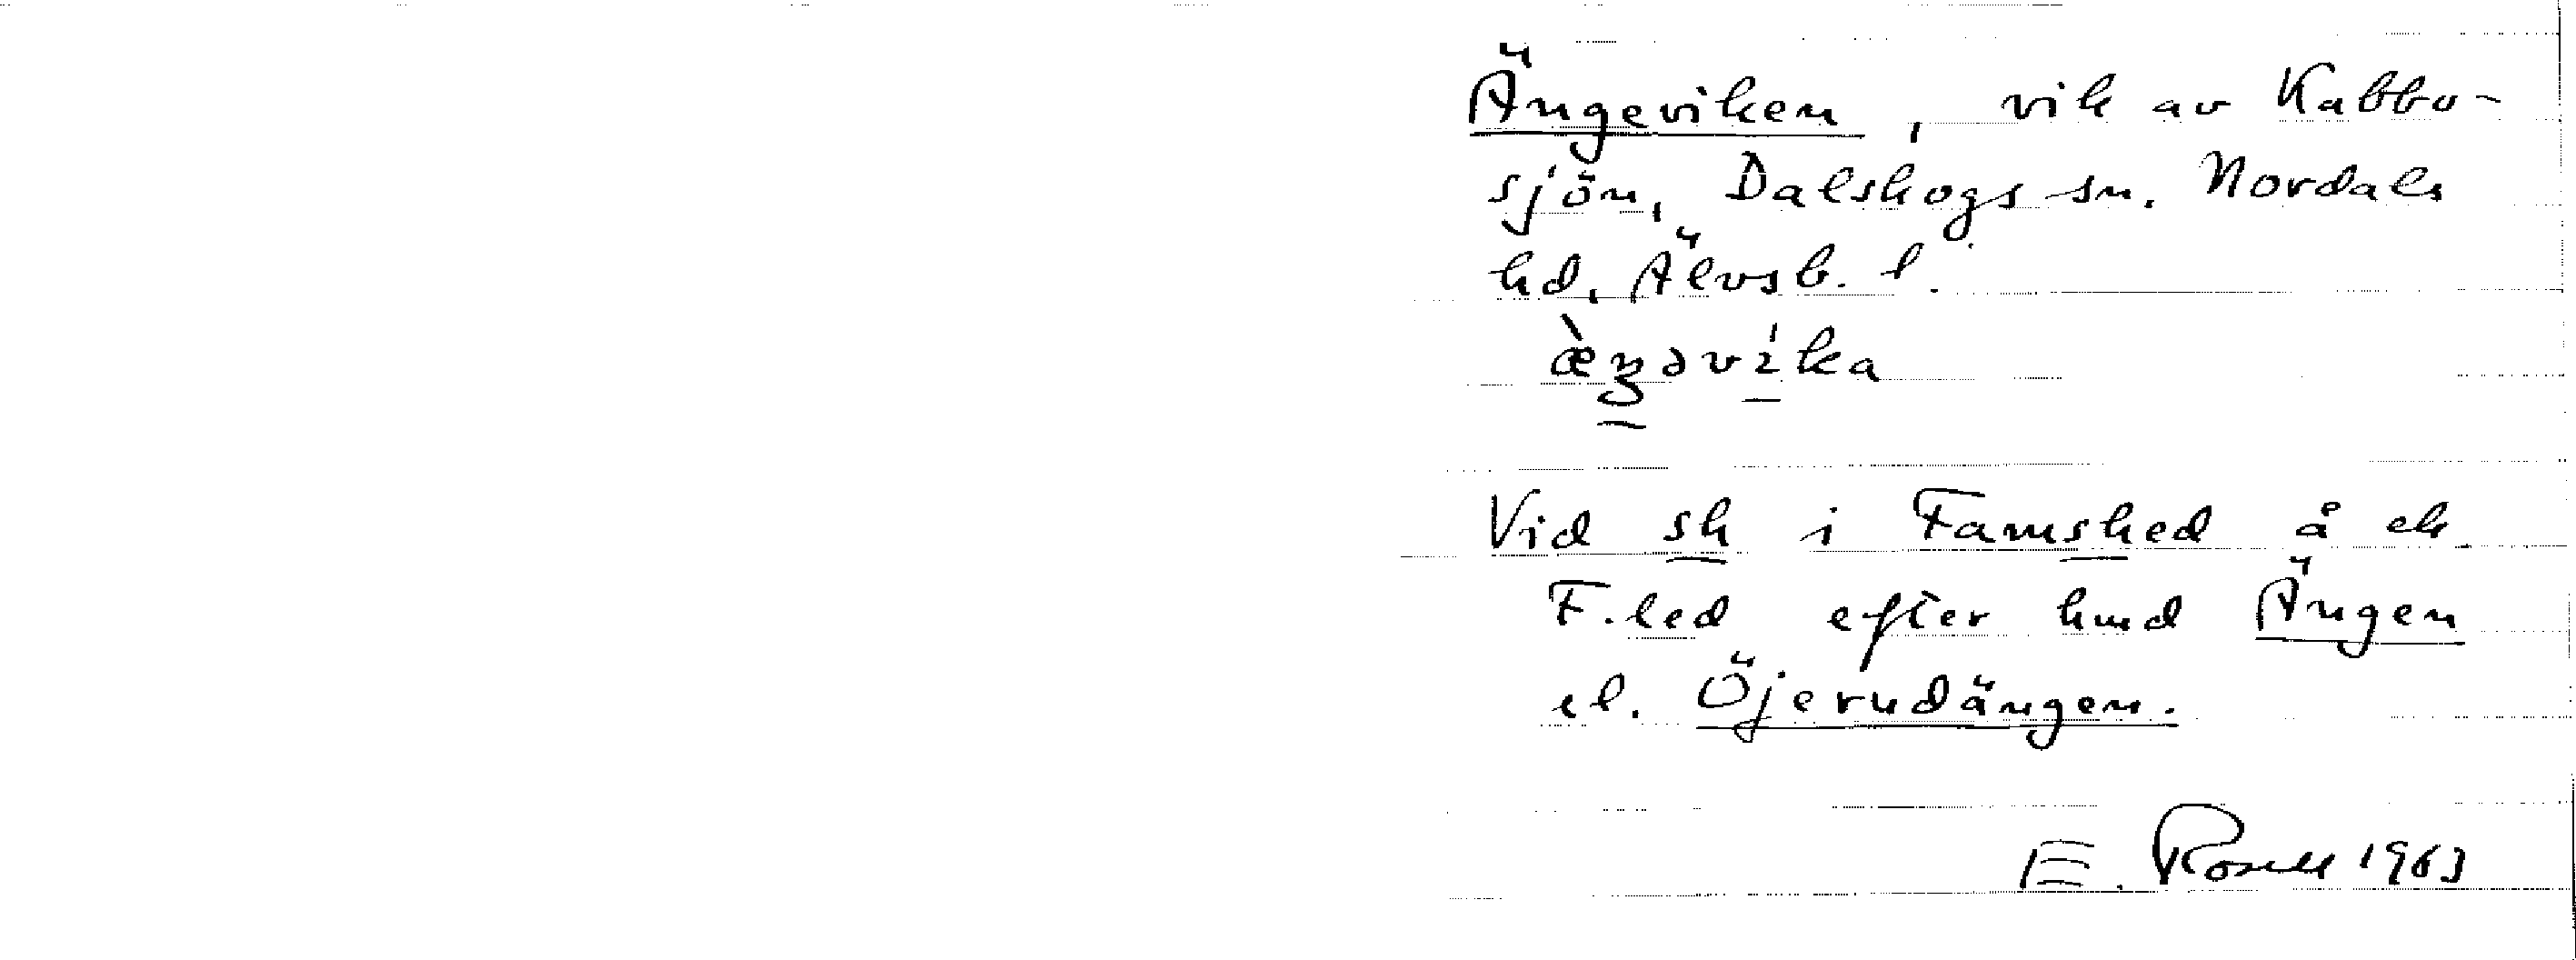 Ängeviken, vik av Kabbo-
sjön, Dalskogs sn. Nordals
hd, Älvsb. l.
æ̀ŋəvíka
Vid sk i Famsked å ek.
F.led efter hmd Ängen
el. Öjerudängen.
E. Rosell 1963